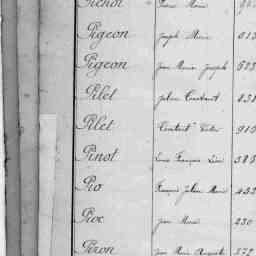 Pichot Pierre Marie
Pigeon Joseph Marie 613
Pigeon Jean Marie Joseph 523
Pilet Julien Constant 831
Pilet Constant Victor 910
Pinot Louis François Léon 385
Pio François Julien Marie 432
Pioc Jean Marie 230
Piron Jean Marie Auguste 372